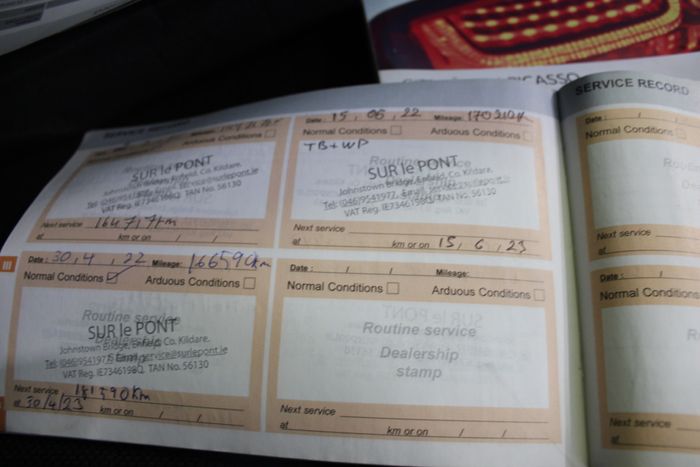 PICASSO
SERVICE RECORD
Normal Conditions Arduous Conditions
SUR le PONT
Johnstown Bridge, Enfield, Co. Kildare.
Tel: (046)9541977, Email: service@surlepont.ie
VAT Reg. IE7346198O, TAN No. 56130
Next service
at km or on / /
Date: 15, 06, 22 Mileage:
Normal Conditions Arduous Conditions
TB+WP
Routine service
SUR le PONT
Johnstown Bridge, Enfield, Co. Kildare.
Tel: (046)9541977, Email: service@surlepont.ie
VAT Reg. IE7346198O, TAN No. 56130
Next service
at km or on 15, 6, 23
Date: 30, 4, 22 Mileage: 166590km
Normal Conditions Arduous Conditions
Routine service
SUR le PONT
Johnstown Bridge, Enfield, Co. Kildare.
Tel: (046)9541977, Email: service@surlepont.ie
VAT Reg. IE7346198O, TAN No. 56130
Next service 181590km
at 30/4/23 km or on / /
Date: / / Mileage:
Normal Conditions Arduous Conditions
Routine service
Dealership
stamp
Next service
at km or on / /
SERVICE RECORD
Date: /
Normal Conditions
Next service
at
Date: /
Normal Conditions
Next service
at